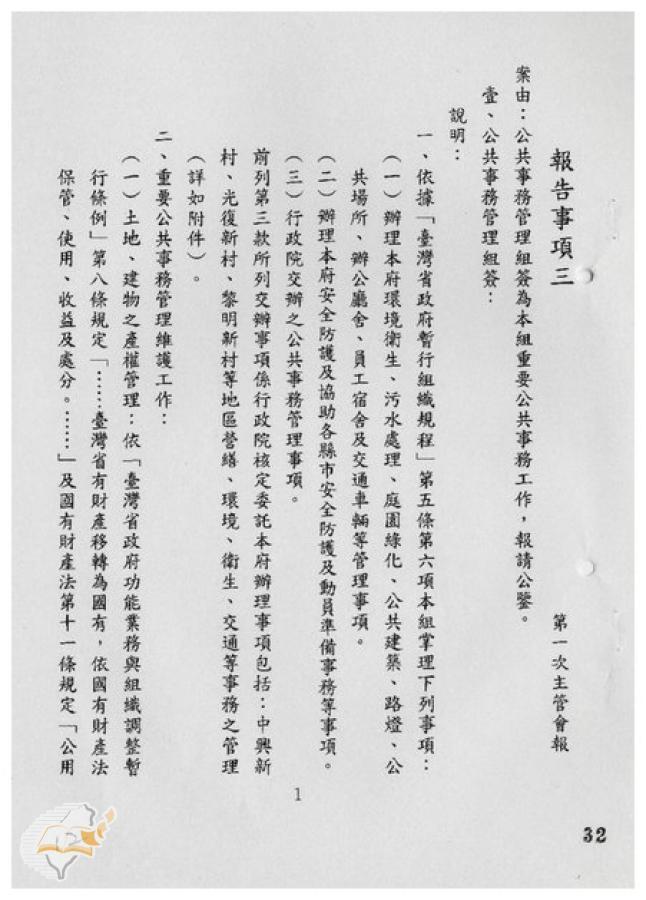 報告事項三
第一次主管會報
案由：公共事務管理組簽為本組重要公共事務工作，報請公鑒。
壹、公共事務管理組簽：
說明：
一、依據「臺灣省政府暫行組織規程」第五條第六項本組掌理下列事項：
（一）辦理本府環境衛生、污水處理、庭園綠化、公共建築、路燈、公
共場所、辦公廳舍、員工宿舍及交通車輛等管理事項。
（二）辦理本府安全防護及協助各縣市安全防護及動員準備事務等事項。
（三）行政院交辦之公共事務管理事項。
前列第三款所列交辦事項係行政院核定委託本府辦理事項包括：中興新
村、光復新村、黎明新村等地區營繕、環境、衛生、交通等事務之管理
（詳如附件）。
二、重要公共事務管理維護工作：
（一）土地、建物之產權管理：依「臺灣省政府功能業務與組織調整暫
行條例」第八條規定「……臺灣省有財產移轉為國有，依國有財產法
保管、使用、收益及處分。……」及國有財產法第十一條規定「公用
1
32